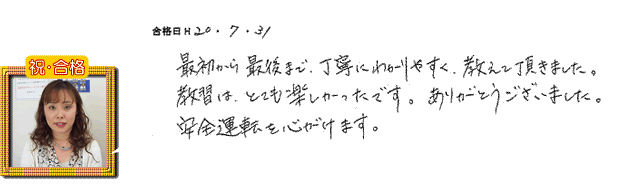 合格日H20・7・31
祝・合格
最初から最後まで、丁寧にわかりやすく、教えて頂きました。
教習は、とても楽しかったです。ありがとうございました。
安全運転を心がけます。